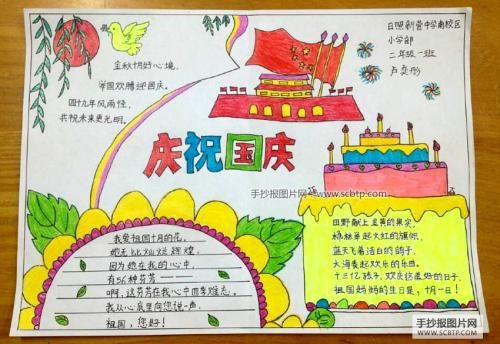 金秋十月好心境,
举国欢腾迎国庆。
四十九年风雨怪,
共祝未来更光明。
日照新营中学南校区
小学部
二年级一班
卢奕彤
庆祝国庆
手抄报图片网
www.scbtp.com
我爱祖国十月的花,
她无比灿烂辉煌
因为她在我的心中
有56种芬芳
啊,这芬芳在我心中四季难忘。
我从心底里向您说一声,
祖国,您好!
田野献上金黄的果实,
枫林举起火红的旗帜,
蓝天飞着洁白的鸽子,
大海奏起欢乐的乐曲。
十三亿孩子,欢庆这美好的日子,
祖国妈妈的生日是,十月一日!
手抄报图片网
SCBTP.COM